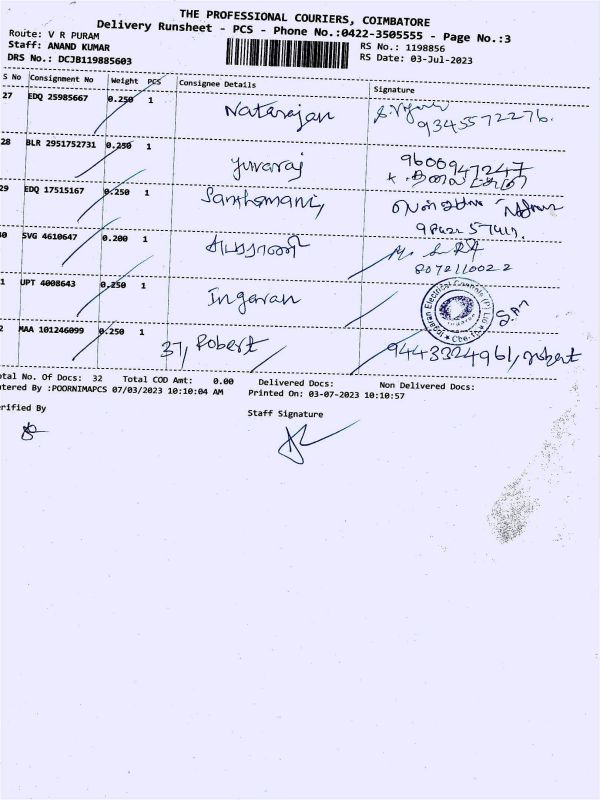 THE PROFESSIONAL COURIERS, COIMBATORE
Delivery Runsheet - PCS - Phone No.:0422-3505555 - Page No.:3
Route: V R PURAM
Staff: ANAND KUMAR
DRS No.: DCJB119885603
RS No.: 1198856
RS Date: 03-Jul-2023
S No Consignment No Weight PCS Consignee Details Signature
27 EDQ 25985667 0.250 1 Natarajan 9345572276.
28 BLR 2951752731 0.250 1 yuvaraj 9600947247
29 EDQ 17515167 0.250 1 Santhamani,
30 SVG 4610647 0.200 1
8072110022
1 UPT 4008643 0.250 1 Ingaran
2 MAA 101246099 0.250 1 37, Robert 9443324961, robert
otal No. Of Docs: 32 Total COD Amt: 0.00 Delivered Docs: Non Delivered Docs:
ntered By :POORNIMAPCS 07/03/2023 10:10:04 AM Printed On: 03-07-2023 10:10:57
erified By
Staff Signature